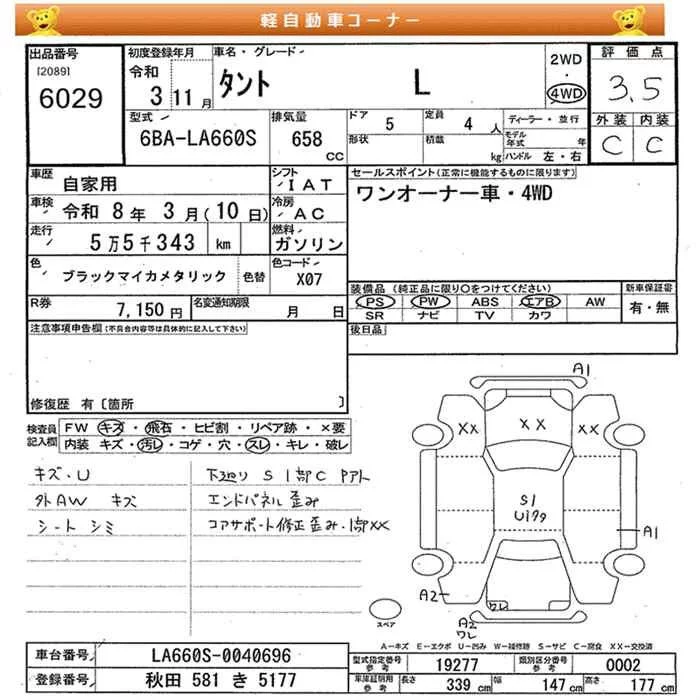 軽自動車コーナー
出品番号 初度登録年月 車名・グレード 2WD ・ 4WD 評価点
[2089] 6029 令和 3 11月 タント L 3.5
型式 6BA-LA660S 排気量 658 CC ドア 5 定員 4 人 ディーラー・並行 外装 内装
形状 積載 kg モデル年式 年 ハンドル 左・右 C C
車歴 自家用 シフト IAT セールスポイント(正常に機能するものに限ります)
車検 令和 8年 3月(10日) 冷房 AC ワンオーナー車・4WD
走行 5万5千343 km 燃料 ガソリン
色 ブラックマイカメタリック 色替 色コード X07
装備品(純正品に限り○をつけてください) 新車保証書
R券 7,150円 名変通知期限 月 日 PS PW ABS エアB AW 有・無
SR ナビ TV カワ
注意事項申告欄(不具合内容等は具体的に記入して下さい) 後日品
修復歴 有〔箇所 〕
検査員記入欄 FW キズ・飛石・ヒビ割・リペア跡・×要
内装 キズ・汚レ・コゲ・穴・スレ・キレ・破レ
キズ・U 下廻り S 1部C Pアト
外AW キズ エンドパネル歪み
シート シミ コアサポート修正歪み・1部XX
A1
XX XX XX
S1
U179
A1
A2 ワレ
A2
ワレ
スペア
A-キズ E-エクボ U-凹み W-補修跡 S-サビ C-腐食 XX-交換済
車台番号 LA660S-0040696 型式指定番号 参考 19277 類別区分番号 参考 0002
登録番号 秋田 581 き 5177 車庫証明用 参考 長さ 339 cm 幅 147 cm 高さ 177 cm